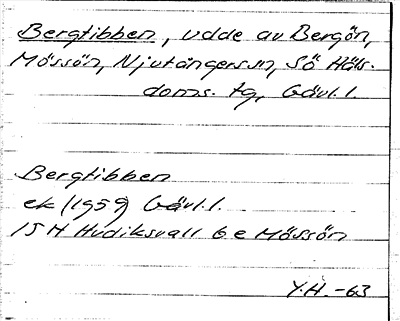 Bergtibben, udde av Bergön,
Mössön, Njutångers sn, Sö Häls.
doms. tg, Gävl. l.
Bergtibben
ek (1959) Gävl. l.
15H Hudiksvall 6 e Mössön
Y.H. -63